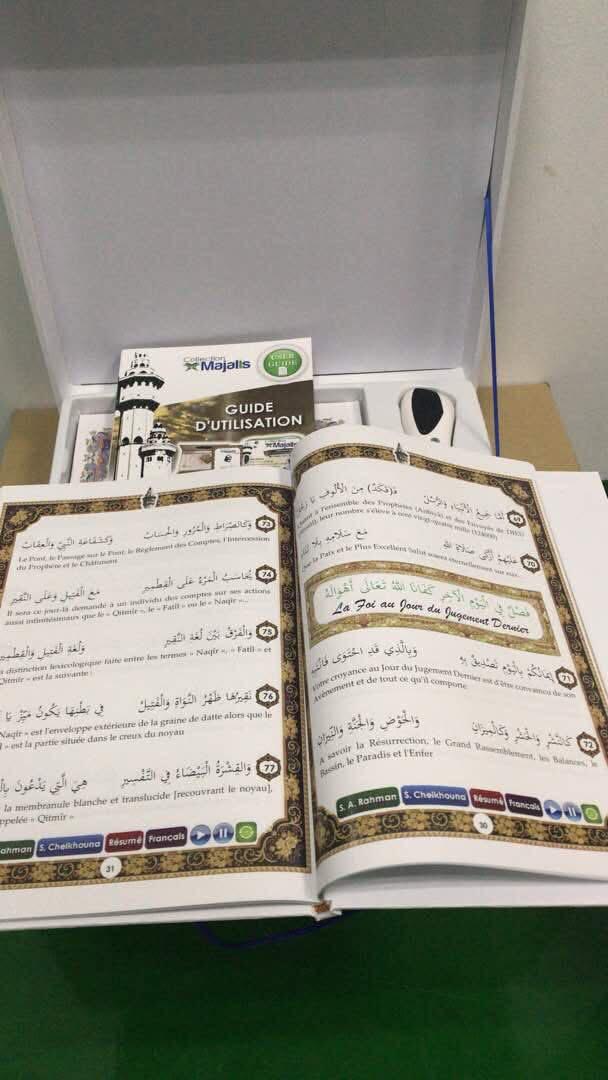 Collection
Majalis
USER
GUIDE
GUIDE
D'UTILISATION
Majalis
69
لَنَا جَمِيعُ الْأَنْبِيَاءِ وَالرُّسُلْ
مِنَ الْأُلُوفِ
à l'ensemble des Prophètes (Anbiyâ) et des Envoyés de DIEU
leur nombre s'élève à cent vingt-quatre mille (124000)
70
عَلَيْهِمُ أَزْكَى صَلَاةِ اللهِ
مَعَ سَلَامِهِ بِلَا
que la Paix et le Plus Excellent Salut soient éternellement sur eux
فَصْلٌ فِي الْيَوْمِ الْآخِرِ كَفَانَا اللهُ تَعَالَى أَهْوَالَهُ
La Foi au Jour du Jugement Dernier
71
إِيمَانُكُمْ بِالْيَوْمِ تَصْدِيقٌ بِهِ
وَبِالَّذِي قَدِ احْتَوَى فَانْتَبِهِ
Votre croyance au Jour du Jugement Dernier est d'être convaincu de son
Avènement et de tout ce qu'il comporte
72
كَالنَّشْرِ وَالْحَشْرِ وَكَالْمِيزَانِ
وَالْحَوْضِ وَالْجَنَّةِ وَالنِّيرَانِ
A savoir la Résurrection, le Grand Rassemblement, les Balances, le
Bassin, le Paradis et l'Enfer
S. A. Rahman S. Cheikhouna Résumé Francais
30
73
وَكَالصِّرَاطِ وَالْمُرُورِ وَالْحِسَابْ
وَكَشَفَاعَةِ النَّبِيِّ وَالْعِقَابْ
Le Pont, le Passage sur le Pont, le Règlement des Comptes, l'Intercession
du Prophète et le Châtiment
74
يُحَاسَبُ الْمَرْءُ عَلَى الْقِطْمِيرِ
مَعَ الْفَتِيلِ وَعَلَى النَّقِيرِ
Il sera ce jour-là demandé à un individu des comptes sur ses actions
aussi infinitésimaux que le « Qitmîr », le « Fatîl » ou le « Naqîr »...
75
وَالْفَرْقُ بَيْنَ لُغَةِ النَّقِيرِ
وَلُغَةِ الْفَتِيلِ وَالْقِطْمِيرِ
distinction lexicologique faite entre les termes « Naqîr », « Fatîl » et
Qitmîr » est la suivante :
76
نَقِيرُهَا ظَهْرُ النَّوَاةِ وَالْفَتِيلْ
فِي بَطْنِهَا يَكُونُ
Naqîr » est l'enveloppe extérieure de la graine de datte alors que le
» est la partie située dans le creux du noyau
77
وَالْقِشْرَةُ الْبَيْضَاءُ فِي التَّفْسِيرِ
هِيَ الَّتِي يَدْعُونَ
la membranule blanche et translucide [recouvrant le noyau],
appelée « Qitmîr »
Rahman S. Cheikhouna Résumé Francais
31